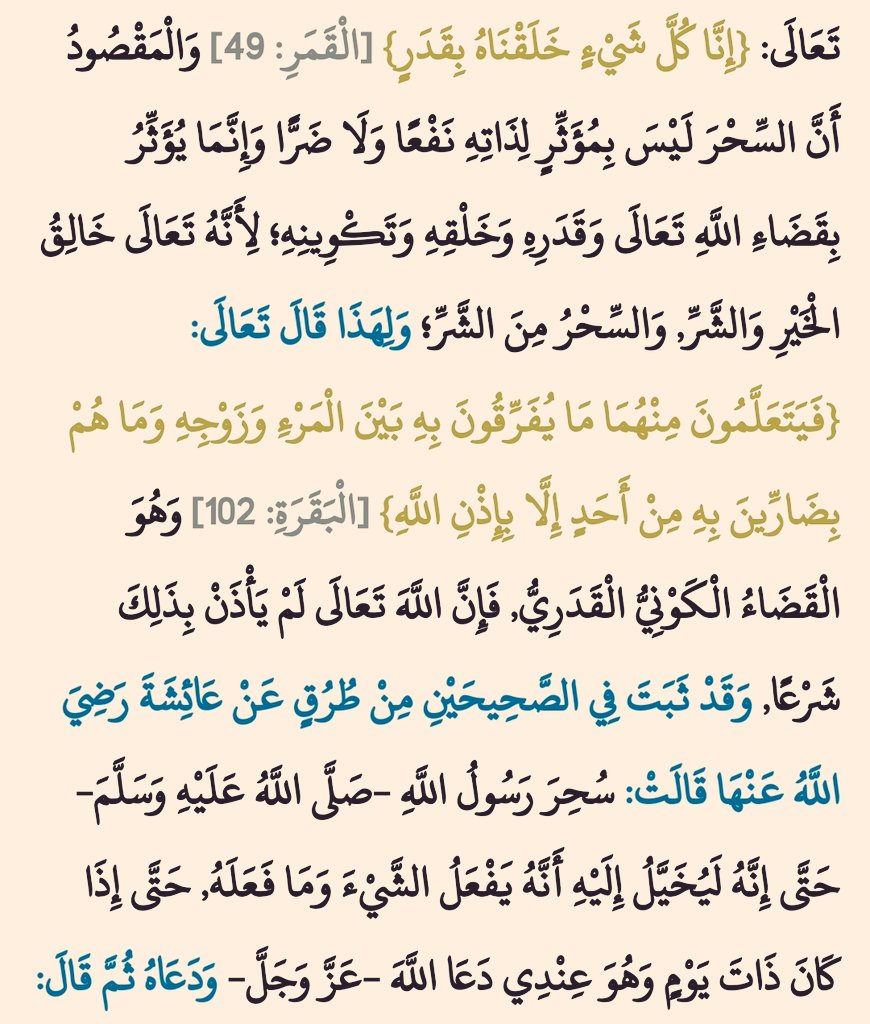 تَعَالَى: {إِنَّا كُلَّ شَيْءٍ خَلَقْنَاهُ بِقَدَرٍ} [الْقَمَرِ: 49] وَالْمَقْصُودُ
أَنَّ السِّحْرَ لَيْسَ بِمُؤَثِّرٍ لِذَاتِهِ نَفْعًا وَلَا ضَرًّا وَإِنَّمَا يُؤَثِّرُ
بِقَضَاءِ اللَّهِ تَعَالَى وَقَدَرِهِ وَخَلْقِهِ وَتَكْوِينِهِ؛ لِأَنَّهُ تَعَالَى خَالِقُ
الْخَيْرِ وَالشَّرِّ, وَالسِّحْرُ مِنَ الشَّرِّ؛ وَلِهَذَا قَالَ تَعَالَى:
{فَيَتَعَلَّمُونَ مِنْهُمَا مَا يُفَرِّقُونَ بِهِ بَيْنَ الْمَرْءِ وَزَوْجِهِ وَمَا هُمْ
بِضَارِّينَ بِهِ مِنْ أَحَدٍ إِلَّا بِإِذْنِ اللَّهِ} [الْبَقَرَةِ: 102] وَهُوَ
الْقَضَاءُ الْكَوْنِيُّ الْقَدَرِيُّ, فَإِنَّ اللَّهَ تَعَالَى لَمْ يَأْذَنْ بِذَلِكَ
شَرْعًا, وَقَدْ ثَبَتَ فِي الصَّحِيحَيْنِ مِنْ طُرُقٍ عَنْ عَائِشَةَ رَضِيَ
اللَّهُ عَنْهَا قَالَتْ: سُحِرَ رَسُولُ اللَّهِ -صَلَّى اللَّهُ عَلَيْهِ وَسَلَّمَ-
حَتَّى إِنَّهُ لَيُخَيَّلُ إِلَيْهِ أَنَّهُ يَفْعَلُ الشَّيْءَ وَمَا فَعَلَهُ, حَتَّى إِذَا
كَانَ ذَاتَ يَوْمٍ وَهُوَ عِنْدِي دَعَا اللَّهَ -عَزَّ وَجَلَّ- وَدَعَاهُ ثُمَّ قَالَ: